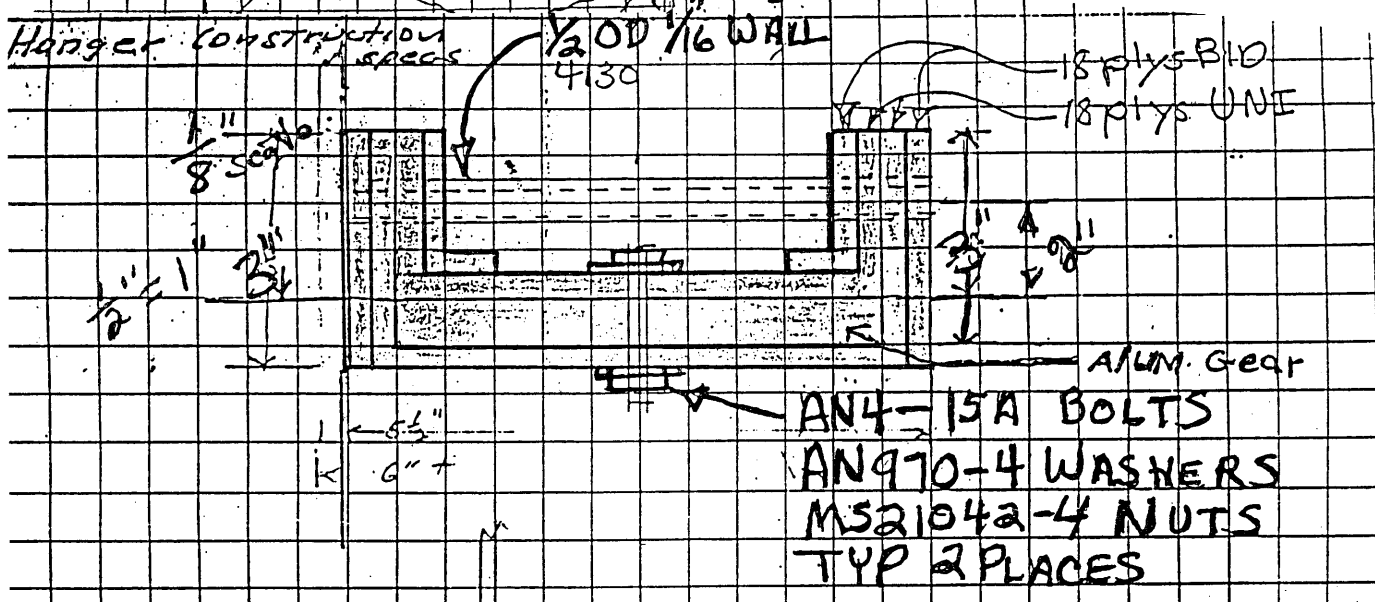 Hanger Construction
specs
1/2 OD 1/16 WALL
4130
18 plys BID
18 plys UNI
1/8" Scale
1/2" = 1"
3"
3"
2"
Alum. Gear
5 1/2"
6" +
AN4-15A BOLTS
AN970-4 WASHERS
MS21042-4 NUTS
TYP 2 PLACES